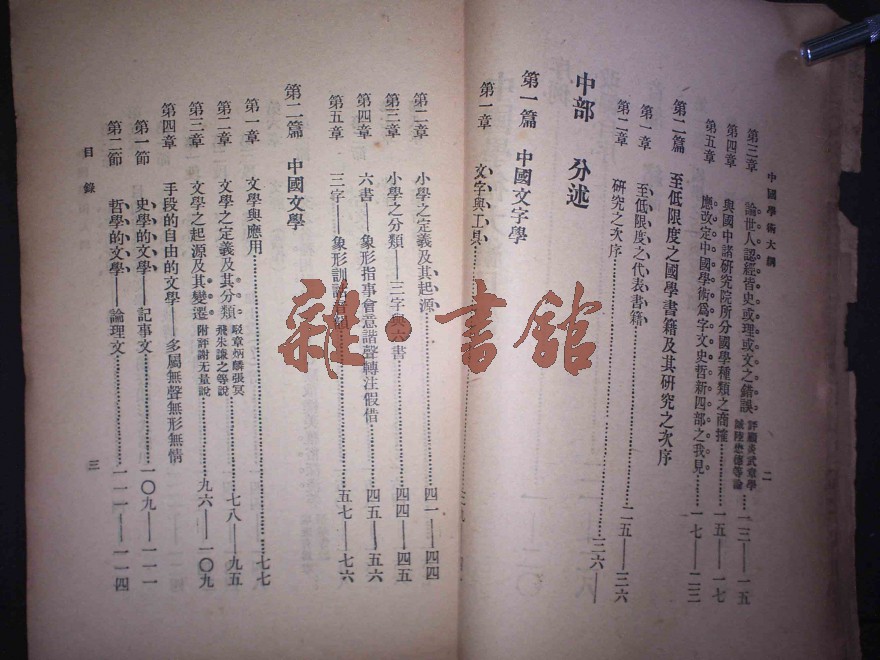 中國學術大綱
二
第三章 論世人認經皆史或理或文之錯誤 評顧炎武章學誠陸懋德等論 一三——一五
第四章 與國中諸研究院所分國學種類之商搉 一五——一七
第五章 應改定中國學術爲字文史哲新四部之我見 一七——二三
第二篇 至低限度之國學書籍及其研究之次序
第一章 至低限度之代表書籍 二五——三六
第二章 研究之次序 三六——
中部 分述
第一篇 中國文字學
第一章 文字與工具
第二章 小學之定義及其起源 四一——四四
第三章 小學之分類——三字與六書 四四——四五
第四章 六書——象形指事會意諧聲轉注假借 四五——五六
第五章 三字——象形訓詁音韻 五七——七六
第二篇 中國文學
第一章 文學與應用 七七
第二章 文學之定義及其分類 駁章炳麟張冥飛朱謙之等說 七八——九五
第三章 文學之起源及其變遷 附評謝无量說 九六——一〇九
第四章 手段的自由的文學——多屬無聲無形無情
第一節 史學的文學——記事文 一〇九——一一一
第二節 哲學的文學——論理文 一一一——一一四
目錄
三
雜·書館